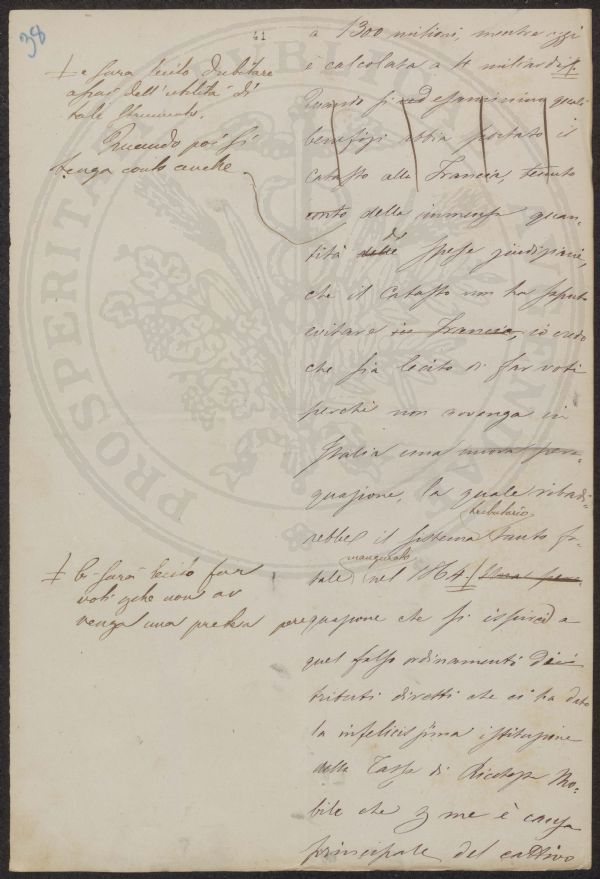 38
41
a 1300 milioni, mentre oggi
è calcolata a 4 miliardi
e sarà lecito dubitare
assai dell'utilità di
tale strumento.
Quando poi si
tenga conto anche
Quando si esaminino quali
benefizi abbia portato il
Catasto alla Francia, tenuto
conto della immensa quan-
tità delle di spese giudiziarie,
che il Catasto non ha saputo
evitare in Francia, io credo
che sia lecito di far voti
perchè non avvenga in
Italia una nuova pere-
quazione, la quale ribadi-
rebbe il sistema tributario tanto fa-
tale inaugurato nel 1864. Una pere
e sarà lecito far
voti che non av
venga una pretesa perequazione che si ispiri a
quel falso ordinamento dei
tributi diretti che ci ha dato
la infelicissima istituzione
della Tassa di Ricchezza Mo-
bile che per me è causa
principale del cattivo
PROSPERITATI PUBLICAE AUGENDAE